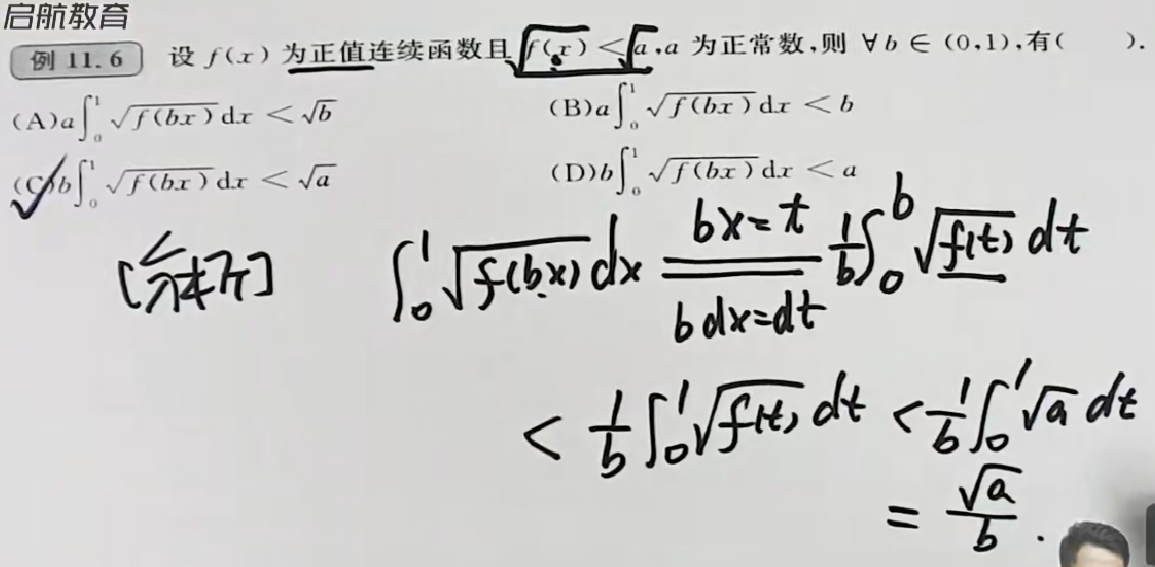 启航教育
例 11.6 设 f(x) 为正值连续函数且 √f(x) < √a, a 为正常数,则 ∀ b ∈ (0,1),有( ).
(A) a∫₀¹ √f(bx) dx < √b (B) a∫₀¹ √f(bx) dx < b
(C) b∫₀¹ √f(bx) dx < √a (D) b∫₀¹ √f(bx) dx < a
[解析] ∫₀¹ √f(bx) dx = (bx=t, bdx=dt) 1/b ∫₀ᵇ √f(t) dt
< 1/b ∫₀¹ √f(t) dt < 1/b ∫₀¹ √a dt
= √a/b .